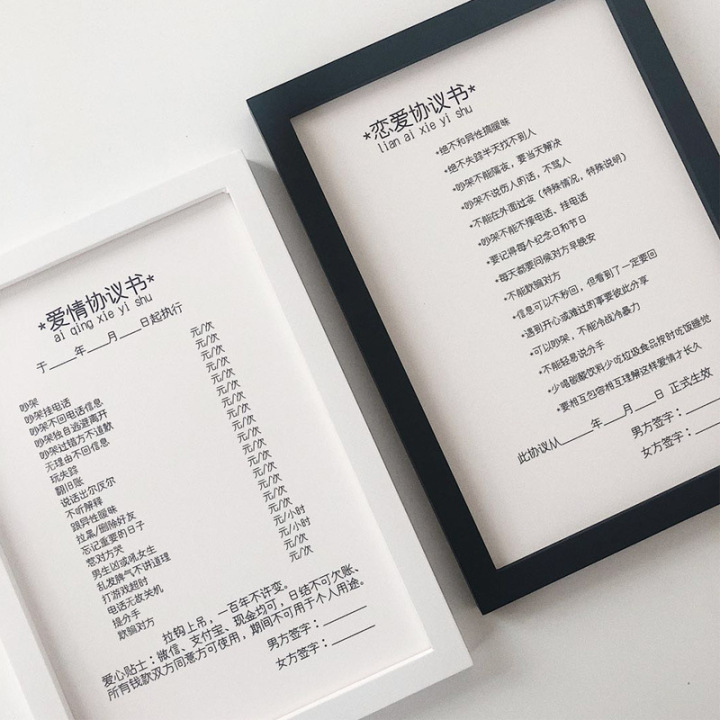 *爱情协议书*
ai qing xie yi shu
于____年____月____日起执行
吵架 元/次
吵架挂电话 元/次
吵架不回电话信息 元/次
吵架独自逃避离开 元/次
吵架过错方不道歉 元/次
无理由不回信息 元/次
玩失踪 元/次
翻旧账 元/次
说话出尔反尔 元/次
不听解释 元/次
跟异性暧昧 元/次
拉黑/删除好友 元/次
忘记重要的日子 元/次
惹对方哭 元/次
男生凶或吼女生 元/次
乱发脾气不讲道理 元/次
打游戏超时 元/小时
电话无故关机 元/小时
提分手 元/次
欺骗对方 元/次
拉钩上吊，一百年不许变。
爱心贴士：微信、支付宝、现金均可，日结不可欠账、
所有钱款双方同意方可使用，期间不可用于个人用途。
男方签字：________
女方签字：________
*恋爱协议书*
lian ai xie yi shu
*绝不和异性搞暧昧
*绝不失踪半天找不到人
*吵架不能隔夜，要当天解决
*吵架不说伤人的话，不骂人
*不能在外面过夜（特殊情况，特殊说明）
*吵架不能不接电话、挂电话
*要记得每个纪念日和节日
*每天都要问候对方早晚安
*不能欺骗对方
*信息可以不秒回，但看到了一定要回
*遇到开心或难过的事要彼此分享
*可以吵架，不能冷战冷暴力
*不能轻易说分手
*少喝碳酸饮料少吃垃圾食品按时吃饭睡觉
*要相互包容相互理解这样爱情才长久
此协议从____年____月____日 正式生效
男方签字：________
女方签字：________